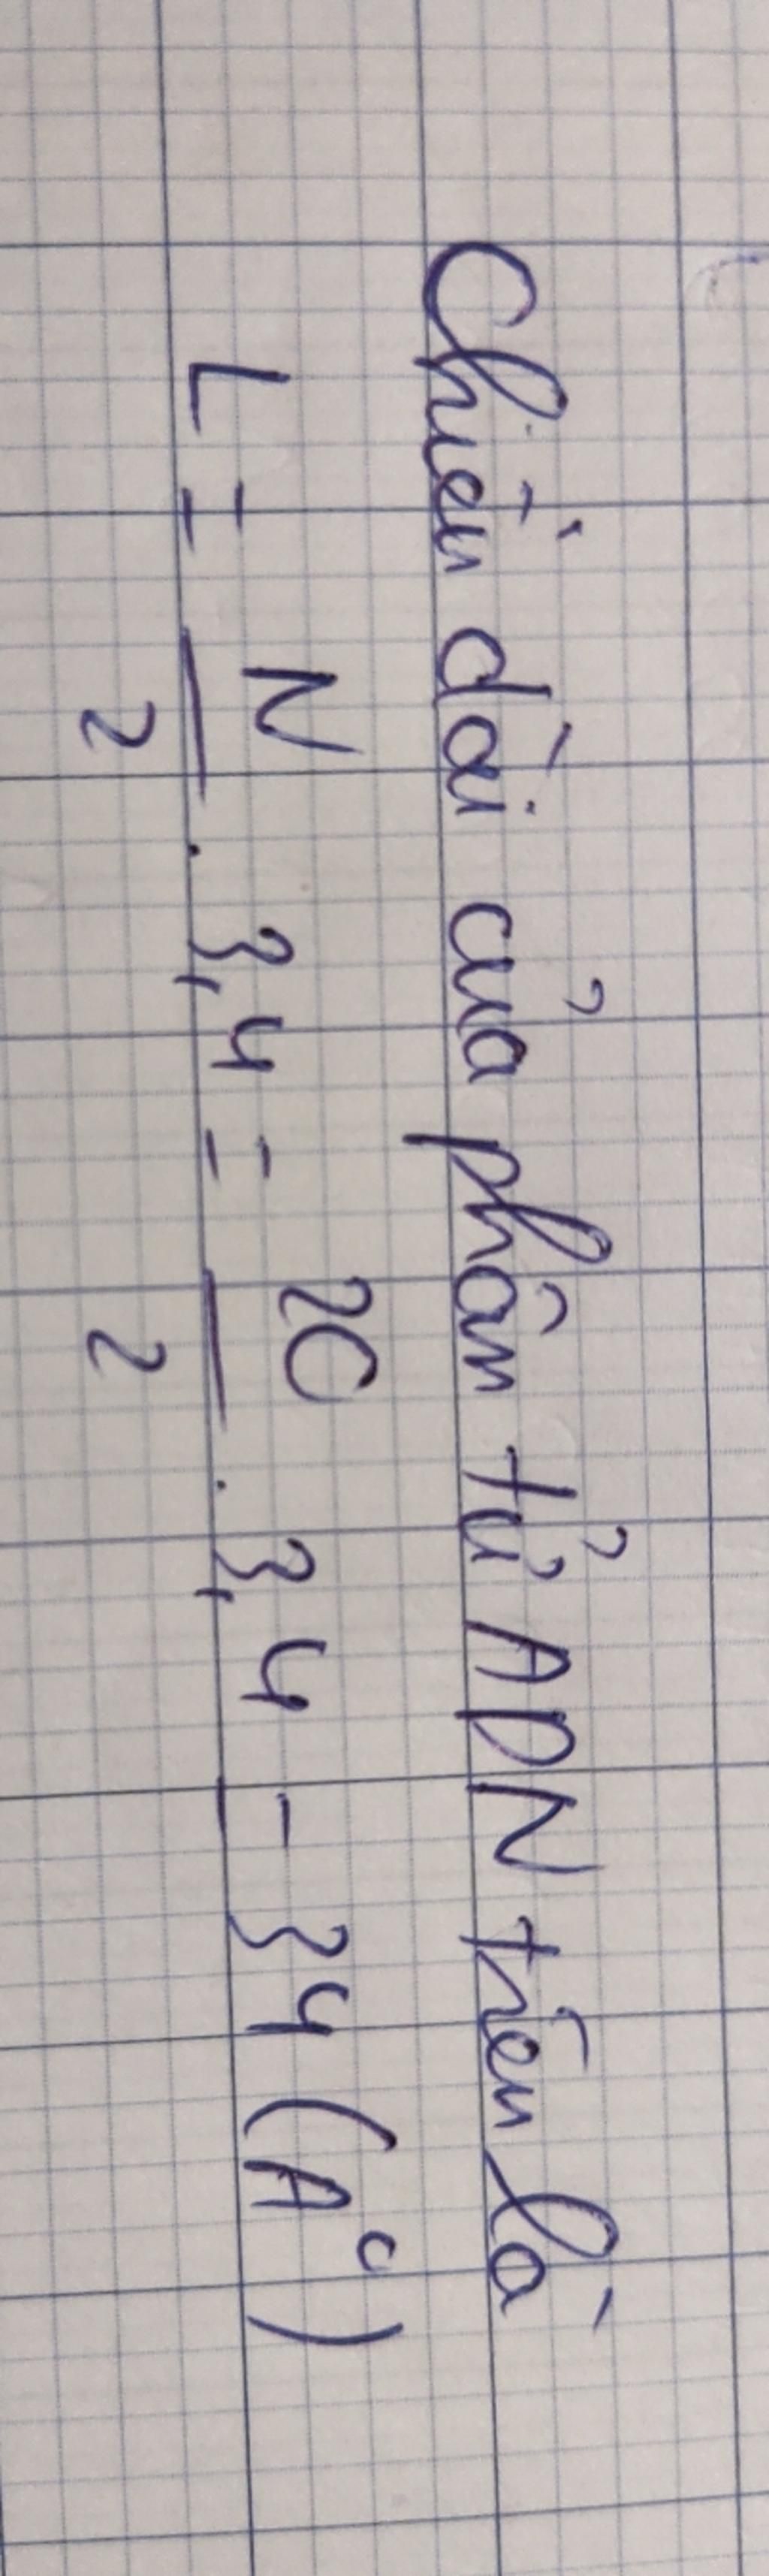 Chiều dài của phân tử ADN trên là
L = N/2 . 3,4 = 20/2 . 3,4 = 34 (A°)